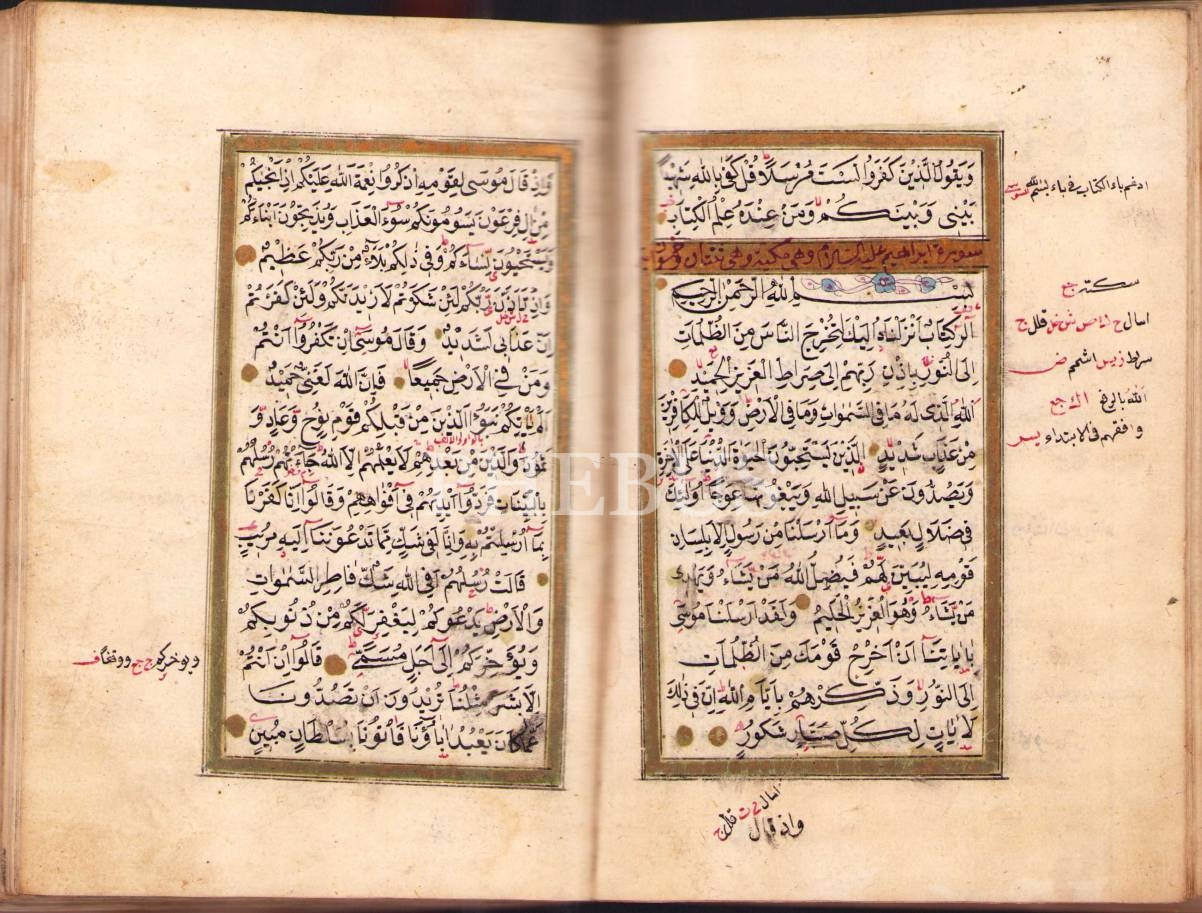 وَيَقُولُ الَّذِينَ كَفَرُوا لَسْتَ مُرْسَلًا قُلْ كَفَى بِاللهِ شَهِيدًا
بَيْنِي وَبَيْنَكُمْ وَمَنْ عِنْدَهُ عِلْمُ الْكِتَابِ
سورة ابراهيم عليه السلام وهى مكية وهى ثنتان وخمسون اية
بِسْمِ اللهِ الرَّحْمٰنِ الرَّحِيمِ
الٓر كِتَابٌ اَنْزَلْنَاهُ اِلَيْكَ لِتُخْرِجَ النَّاسَ مِنَ الظُّلُمَاتِ
اِلَى النُّورِ بِاِذْنِ رَبِّهِمْ اِلَى صِرَاطِ الْعَزِيزِ الْحَمِيدِ
اللهِ الَّذِى لَهُ مَا فِى السَّمٰوَاتِ وَمَا فِى الْاَرْضِ وَوَيْلٌ لِلْكَافِرِينَ
مِنْ عَذَابٍ شَدِيدٍ الَّذِينَ يَسْتَحِبُّونَ الْحَيٰوةَ الدُّنْيَا عَلَى الْاٰخِرَةِ
وَيَصُدُّونَ عَنْ سَبِيلِ اللهِ وَيَبْغُونَهَا عِوَجًا اُولٰئِكَ
فِى ضَلَالٍ بَعِيدٍ وَمَا اَرْسَلْنَا مِنْ رَسُولٍ اِلَّا بِلِسَانِ
قَوْمِهِ لِيُبَيِّنَ لَهُمْ فَيُضِلُّ اللهُ مَنْ يَشَاءُ وَيَهْدِى
مَنْ يَشَاءُ وَهُوَ الْعَزِيزُ الْحَكِيمُ وَلَقَدْ اَرْسَلْنَا مُوسٰى
بِاٰيَاتِنَا اَنْ اَخْرِجْ قَوْمَكَ مِنَ الظُّلُمَاتِ
اِلَى النُّورِ وَذَكِّرْهُمْ بِاَيَّامِ اللهِ اِنَّ فِى ذٰلِكَ
لَاٰيَاتٍ لِكُلِّ صَبَّارٍ شَكُورٍ
ادغم باء الكتاب في باء بسم الله
سكت جع
امال ح
سراط زيس اشمم ض
الله بالرفع
وافقهم فى الابتداء يسر
امال
واذ قال
وَاِذْ قَالَ مُوسَى لِقَوْمِهِ اذْكُرُوا نِعْمَةَ اللهِ عَلَيْكُمْ اِذْ اَنْجٰيكُمْ
مِنْ اٰلِ فِرْعَوْنَ يَسُومُونَكُمْ سُوءَ الْعَذَابِ وَيُذَبِّحُونَ اَبْنَاءَكُمْ
وَيَسْتَحْيُونَ نِسَاءَكُمْ وَفِى ذٰلِكُمْ بَلَاءٌ مِنْ رَبِّكُمْ عَظِيمٌ
وَاِذْ تَاَذَّنَ رَبُّكُمْ لَئِنْ شَكَرْتُمْ لَاَزِيدَنَّكُمْ وَلَئِنْ كَفَرْتُمْ
اِنَّ عَذَابِى لَشَدِيدٌ وَقَالَ مُوسٰى اِنْ تَكْفُرُوا اَنْتُمْ
وَمَنْ فِى الْاَرْضِ جَمِيعًا فَاِنَّ اللهَ لَغَنِىٌّ حَمِيدٌ
اَلَمْ يَاْتِكُمْ نَبَؤُا الَّذِينَ مِنْ قَبْلِكُمْ قَوْمِ نُوحٍ وَعَادٍ وَ
ثَمُودَ وَالَّذِينَ مِنْ بَعْدِهِمْ لَا يَعْلَمُهُمْ اِلَّا اللهُ جَاءَتْهُمْ رُسُلُهُمْ
بِالْبَيِّنَاتِ فَرَدُّوا اَيْدِيَهُمْ فِى اَفْوَاهِهِمْ وَقَالُوا اِنَّا كَفَرْنَا
بِمَا اُرْسِلْتُمْ بِهِ وَاِنَّا لَفِى شَكٍّ مِمَّا تَدْعُونَنَا اِلَيْهِ مُرِيبٍ
قَالَتْ رُسُلُهُمْ اَفِى اللهِ شَكٌّ فَاطِرِ السَّمٰوَاتِ
وَالْاَرْضِ يَدْعُوكُمْ لِيَغْفِرَ لَكُمْ مِنْ ذُنُوبِكُمْ
وَيُؤَخِّرَكُمْ اِلَى اَجَلٍ مُسَمًّى قَالُوا اِنْ اَنْتُمْ
اِلَّا بَشَرٌ مِثْلُنَا تُرِيدُونَ اَنْ تَصُدُّونَا
عَمَّا كَانَ يَعْبُدُ اٰبَاؤُنَا فَاْتُونَا بِسُلْطَانٍ مُبِينٍ
ويوخركم ج جع ووقفا ف
THEBUS